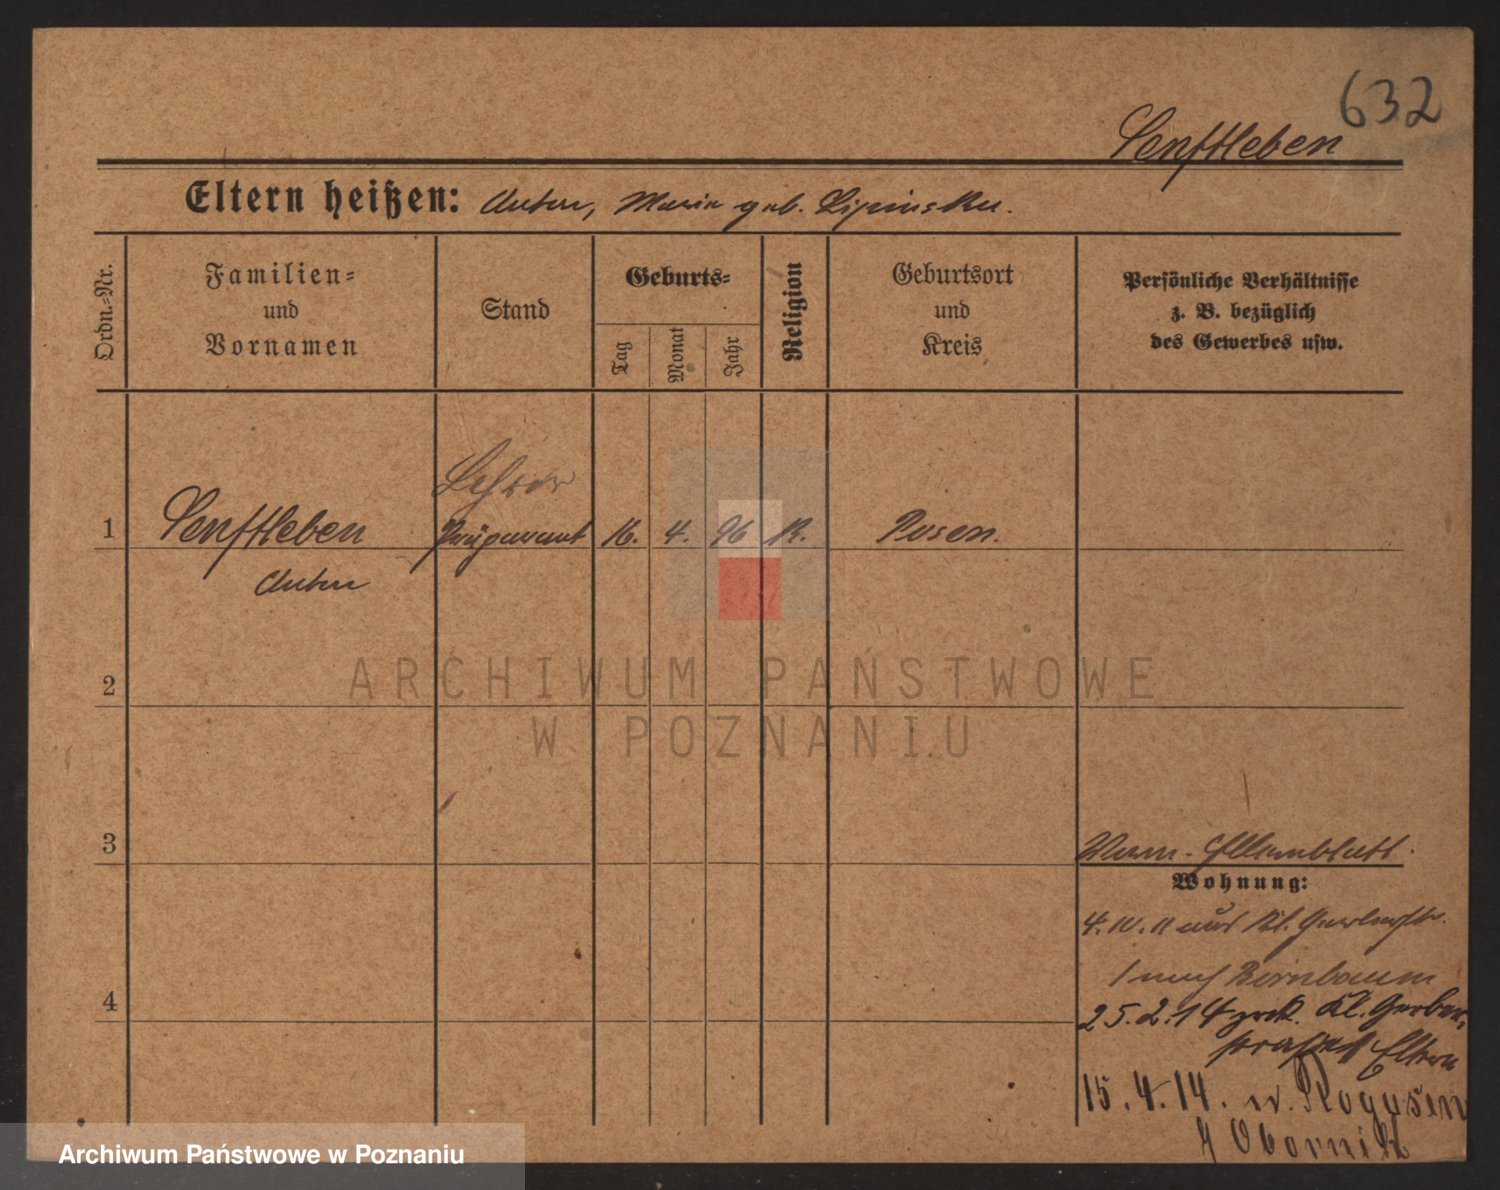 632
Senftleben
Eltern heißen: Anton, Maria geb. Lipinska.
Ordn.-Nr.
Familien-
und
Vornamen
Stand
Geburts-
Tag
Monat
Jahr
Religion
Geburtsort
und
Kreis
Persönliche Verhältnisse
z. B. bezüglich
des Gewerbes usw.
Lehrer
1 Senftleben Präparant 16. 4. 96 K. Posen.
Anton
2
3
4
Elternblatt.
Wohnung:
4. 10. 11 aus Kl. Gerberstr.
1 nach Birnbaum
25.2.14 zrck. Kl. Gerber
straße Eltern
15.4.14. n. Rogasen
Obornik
ARCHIWUM PAŃSTWOWE
W POZNANIU
Archiwum Państwowe w Poznaniu